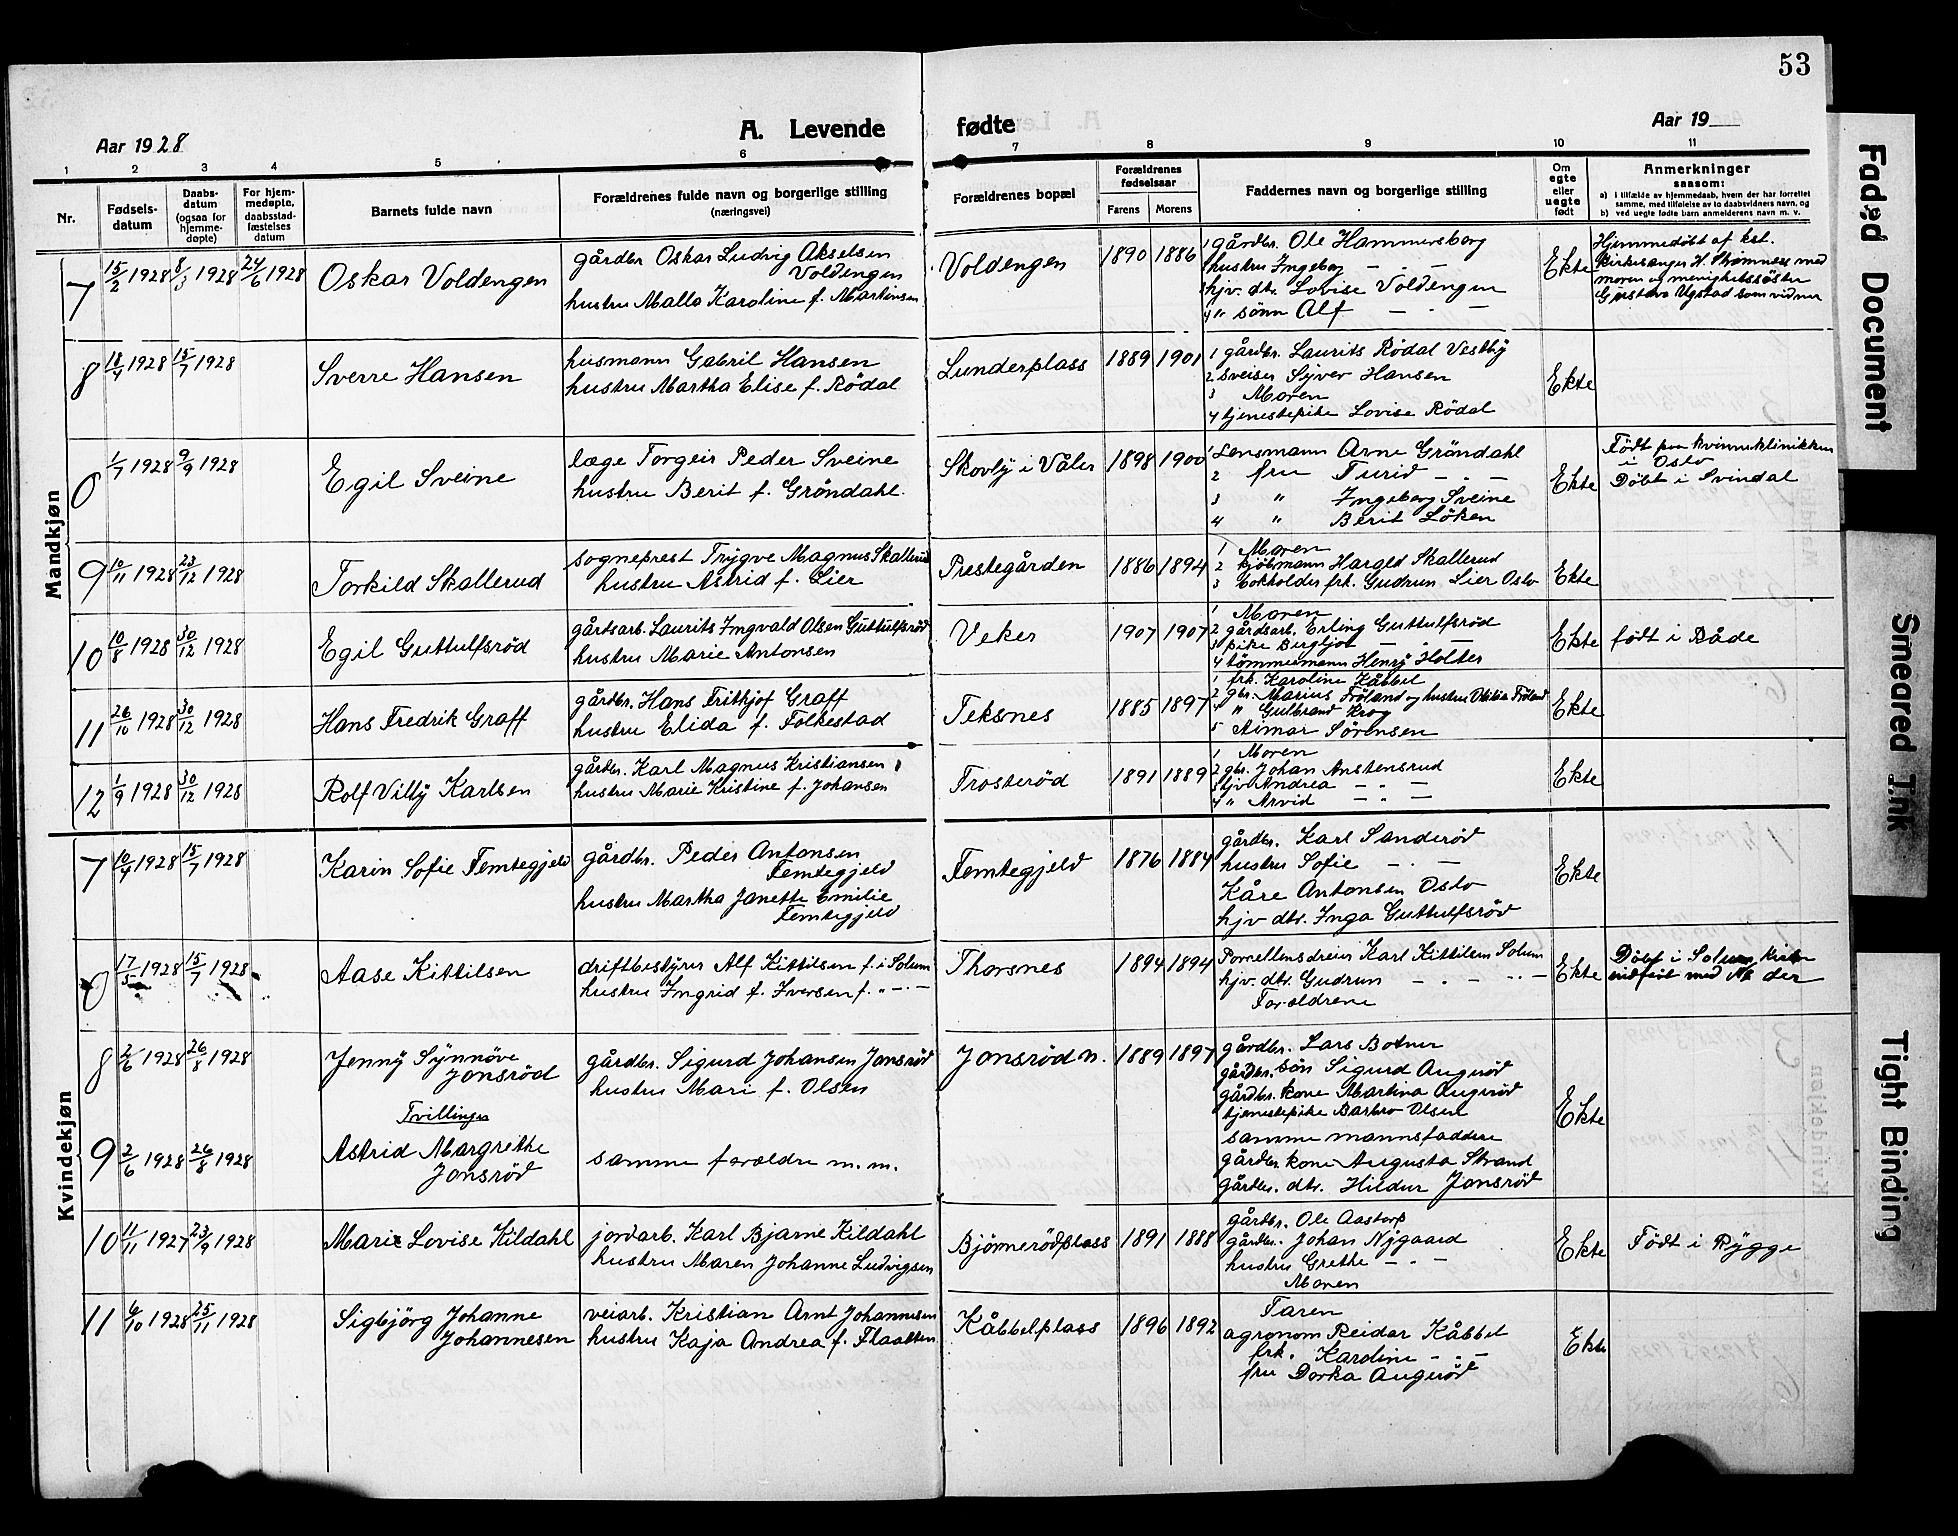 53
Aar 1928
A. Levende fødte
Aar 19
1 2 3 4 5 6 7 8 9 10 11
Nr.
Fødsels-datum
Daabs-datum (ogsaa for hjemme-døpte)
For hjem-medøpte, daabsstad-fæstelses datum
Barnets fulde navn
Forældrenes fulde navn og borgerlige stilling (næringsvei)
Forældrenes bopæl
Forældrenes fødselsaar
Farens Morens
Faddernes navn og borgerlige stilling
Om egte eller uegte født
Anmerkninger
saasom:
a) i tilfælde av hjemmedaab, hvem der har forrettet samme, med tilføielse av to daabsvidners navn, og
b) ved uegte fødte barn anmelderens navn m. v.
Mandkjøn
7 15/2 1928 8/3 1928 24/6 1928
Oskar Voldengen
gårdbr Oskar Ludvig Akselsen
Voldengen
hustru Malla Karoline f. Martinsen
Voldengen 1890 1886
1 gårdbr. Ole Hammersborg
hustru Ingeborg — . —
hjv. dtr. Lovise Voldengen
4 " sönn Alf — . —
Ekte
Hjemmedöbt af kst.
kirkesanger H. Strømnes med
moren og menighetssöster
Gustava Ugstad som vidner
8 18/4 1928 15/7 1928
Sverre Hansen
husmann Gabril Hansen
hustru Martha Elise f. Rödal
Lunderplass 1889 1901
1 gårdbr. Laurits Rödal Vestby
2 sveiser Syver Hansen
3 Moren
4 tjenestepike Lovise Rödal
Ekte
0 1/7 1928 9/9 1928
Egil Sveine
læge Torgeir Peder Sveine
hustru Berit f. Gröndahl.
Skovly i Våler 1898 1900
1 Lensmann Arne Gröndahl
2 fru Turid — . —
3 " Ingeborg Sveine
4 " Berit Löken
Ekte
Födt paa kvinneklinikken
i Oslo
Döbt i Svindal
9 10/11 1928 23/12 1928
Torkild Skallerud
sogneprest Trygve Magnus Skallerud
hustru Astrid f. Lier
Prestegården 1886 1894
1 Moren
2 kjöbmann Harald Skallerud
3 bokholder frk. Gudrun Lier Oslo
Ekte
10 10/8 1928 30/12 1928
Egil Guttulfsröd
gårdsarb. Laurits Ingvald Olsen Guttulfsröd
hustru Marie Antonsen
Veker 1907 1907
1 Moren
2 gårdsarb. Erling Guttulfsröd
3 pike Bergljot —
4 tömmermann Henry Holter
Ekte
födt i Råde
11 26/10 1928 30/12 1928
Hans Fredrik Graff
gårdbr. Hans Fritkjof Graff
hustru Elida f. Folkestad
Teksnes 1885 1897
1 frk. Karoline Kåbbel
2 gbr. Marius Fröland og hustru Otilia Fröland
4 " Gulbrand Krog
5 Aimar Sörensen
Ekte
12 1/9 1928 30/12 1928
Rolf Villy Karlsen
gårdbr. Karl Magnus Kristiansen
hustru Marie Kristine f. Johansen
Trosteröd 1891 1889
1 Moren
2 gbr. Johan Anstensrud
3 hjv Andrea — . —
4 " Arvid — . —
Ekte
Kvindekjøn
7 10/4 1928 15/7 1928
Karin Sofie Femtegjeld
gårdbr. Peder Antonsen
Femtegjeld
hustru Martha Janette Emilie
Femtegjeld
Femtegjeld 1876 1884
gårdbr. Karl Sanderöd
hustru Sofie — . —
Kåre Antonsen Oslo
hjv dtr. Inga Guttulfsröd
Ekte
0 17/5 1928 15/7 1928
Aase Kittilsen
driftbestyrer Alf Kittilsen f. i Solum
hustru Ingrid f. Iversen f. " — . —
Thorsnes 1894 1894
Porsellensdreier Karl Kittilsen Solum
hjv. dtr. Gudrun — . —
Foræeldrene
Ekte
Döbt i Solum kirke
indfört med Nr der
8 2/6 1928 26/8 1928
Jenny Synnöve
Jonsröd
gårdbr. Sigurd Johansen Jonsröd
hustru Mari f. Olsen
Jonsröd n. 1889 1897
gårdbr. Lars Botner
gårdbr. sön Sigurd Augeröd
gårdbr. kone Martina Augeröd
tjenestepike Barbro Olsen
Tvillinger
9 2/6 1928 26/8 1928
Astrid Margrethe
Jonsröd
samme forældre m. m.
samme mannsfaddere
gårdbr kone Augusta Strand
gårdbr. dtr. Hildur Jonsröd
Ekte
10 11/11 1927 23/9 1928
Marie Lovise Kildahl
jordarb. Karl Bjarne Kildahl
hustru Maren Johanne Ludvigsen
Björnerödplass 1891 1888
gårdbr. Ole Aastorp
gårdbr. Johan Nygaard
hustru Grethe — . —
Moren
Ekte
Födt i Rygge
11 6/10 1928 25/11 1928
Sigbjörg Johanne
Johannesen
veiarb. Kristian Arnt Johannesen
hustru Kaja Andrea f. Flaatten
Kåbbelplass 1896 1892
Faren
agronom Reidar Kåbbel
frk. Karoline — . —
fru Dorka Augeröd
Ekte
Faded Document
Smeared Ink
Tight Binding